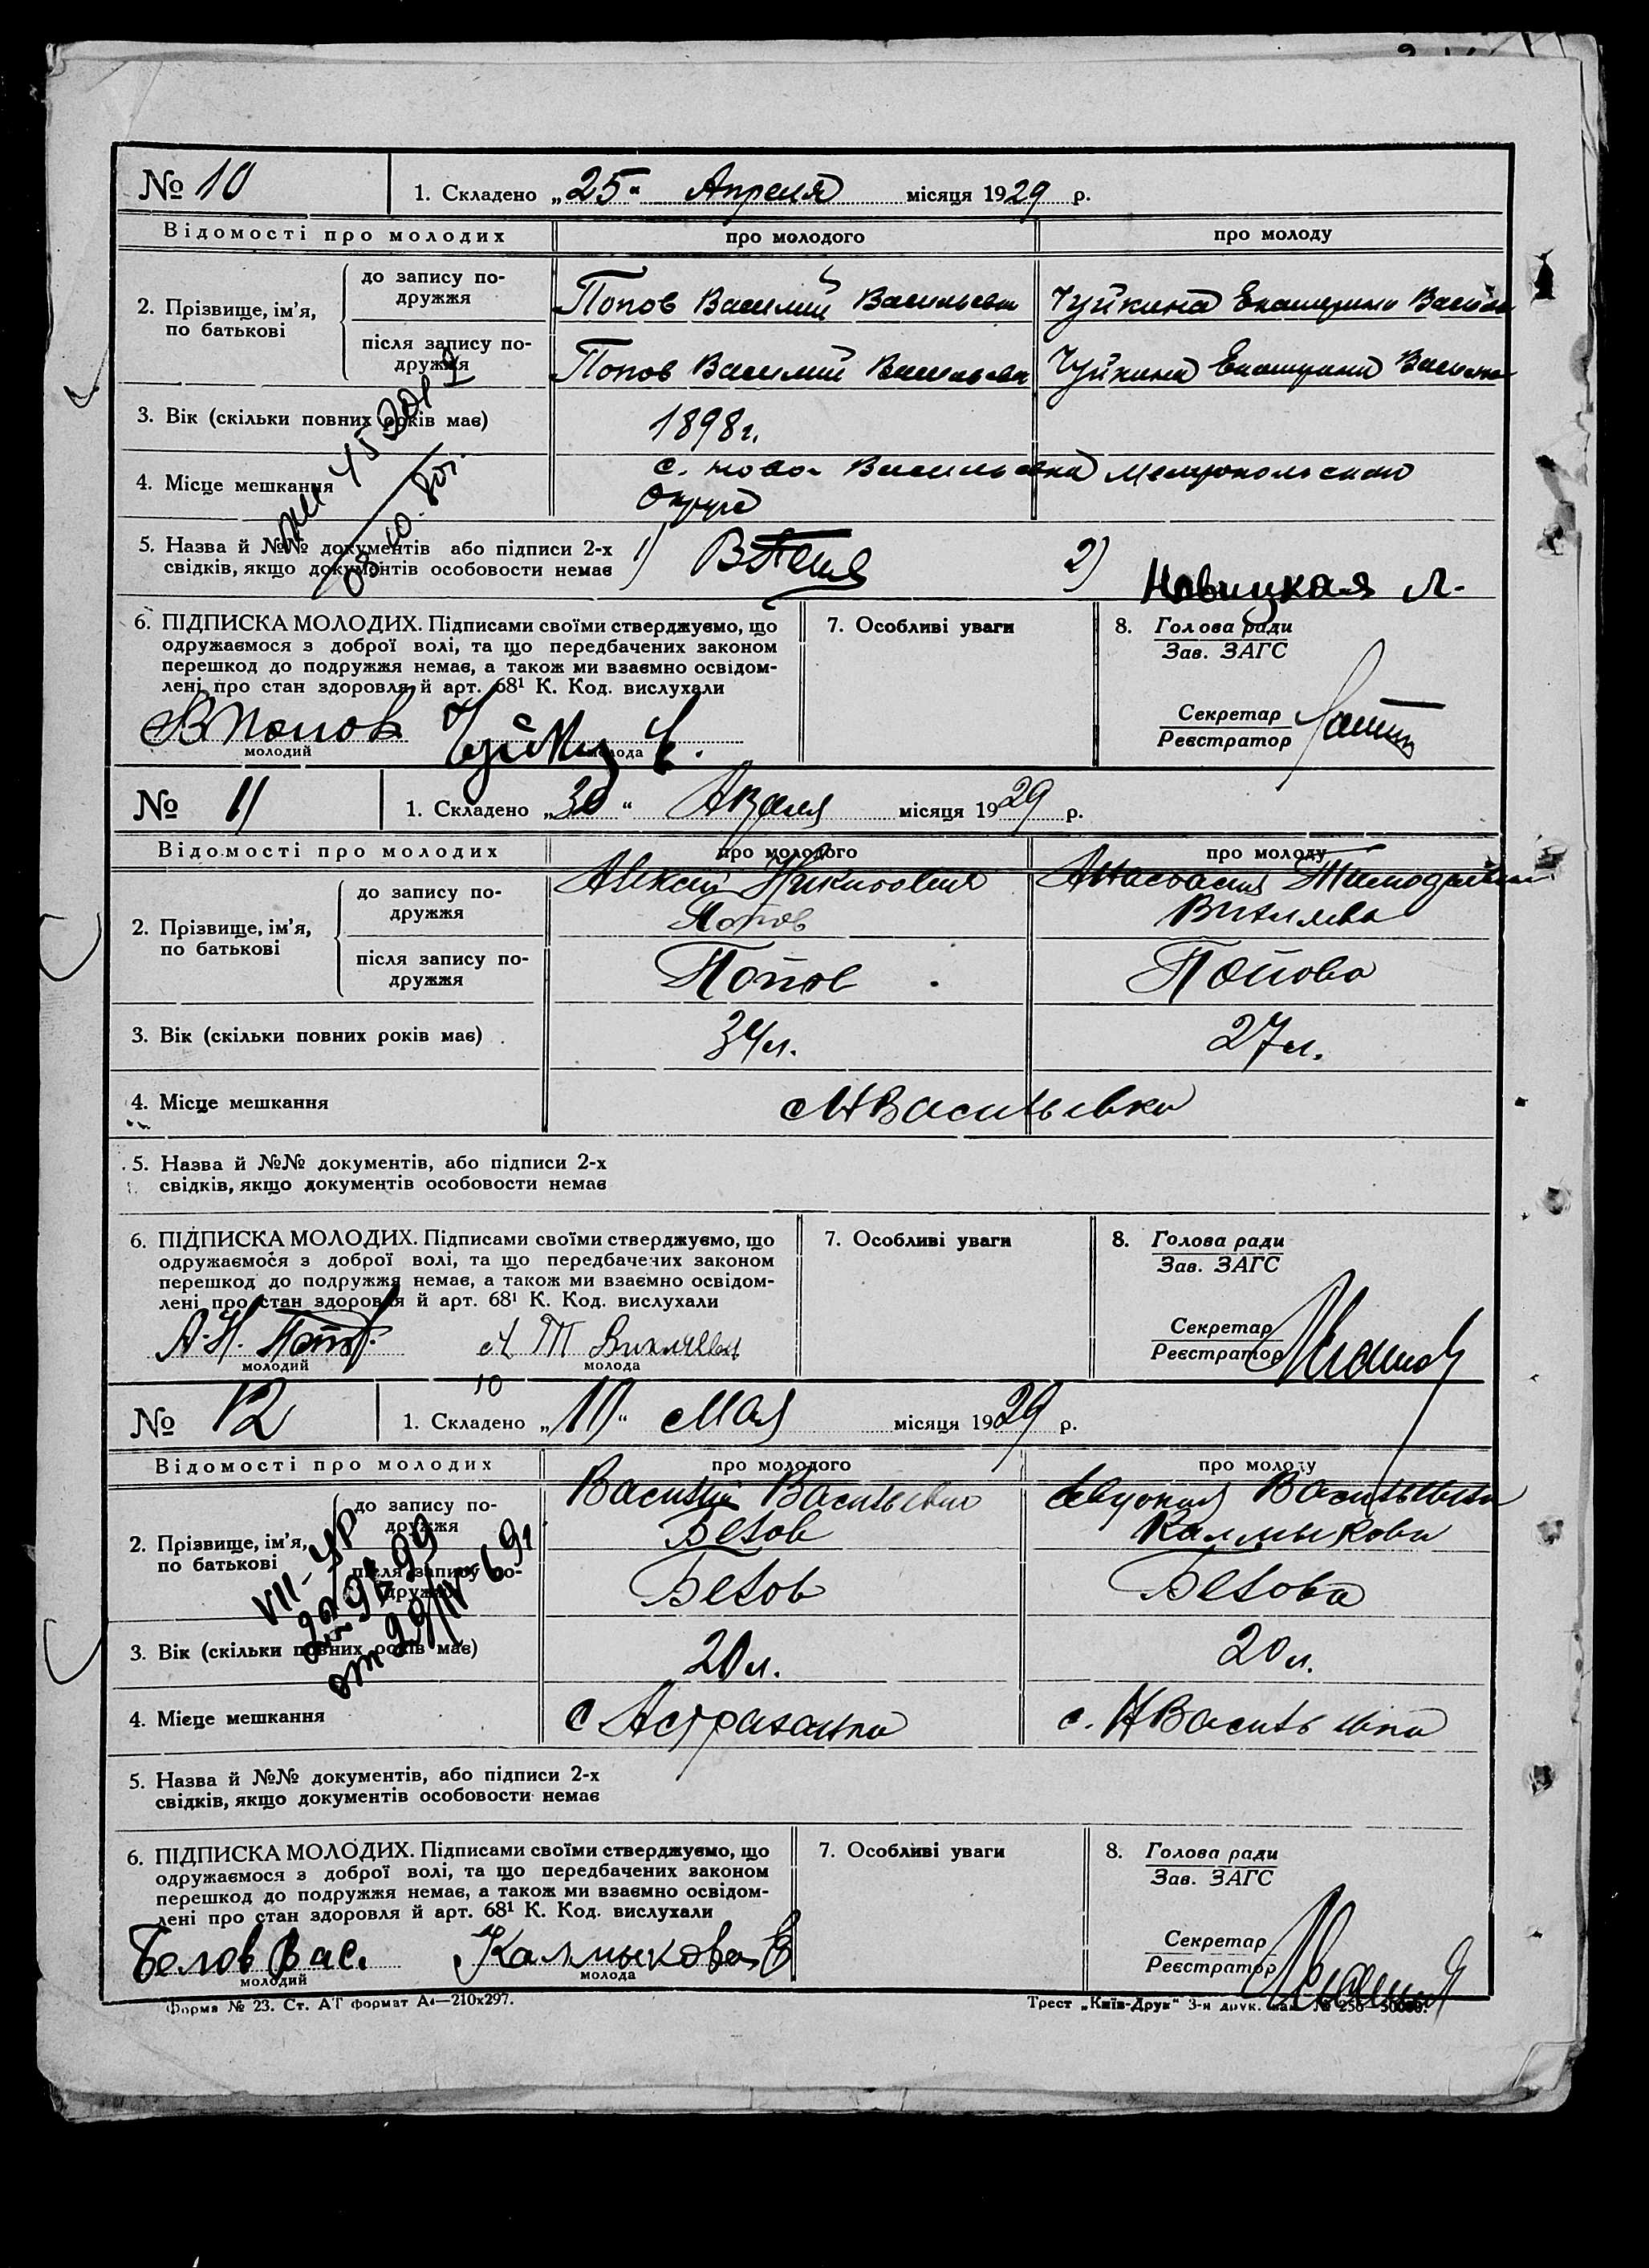 № 10 1. Складено „25“ Апреля місяця 1929 р.
Відомості про молодих про молодого про молоду
2. Прізвище, ім'я, по батькові
до запису подружжя
Попов Василий Васильевич Чуйкина Екатерина Васильев
після запису подружжя
Попов Василий Васильевич Чуйкина Екатерина
3. Вік (скільки повних років має) 1898г.
4. Місце мешкання с. ново-Васильевка Мелитопольского
округа
5. Назва й №№ документів або підписи 2-х 1) 2)
свідків, якщо документів особовости немає Новицкая Л.
6. ПІДПИСКА МОЛОДИХ. Підписами своїми стверджуємо, що
одружаємося з доброї волі, та що передбачених законом
перешкод до подружжя немає, а також ми взаємно освідом-
лені про стан здоровля й арт. 68¹ К. Код. вислухали
7. Особливі уваги
8. Голова ради
Зав. ЗАГС
Секретар
Реєстратор
ВПопов
молодий молода
№ 11 1. Складено „30“ Апреля місяця 1929 р.
Відомості про молодих про молодого про молоду
2. Прізвище, ім'я, по батькові
до запису подружжя
Алексей Никитович Анастасия Тимофеевна
Попов
після запису подружжя
Попов Попова
3. Вік (скільки повних років має) 34 л. 27 л.
4. Місце мешкання с НВасильевка
5. Назва й №№ документів, або підписи 2-х
свідків, якщо документів особовости немає
6. ПІДПИСКА МОЛОДИХ. Підписами своїми стверджуємо, що
одружаємося з доброї волі, та що передбачених законом
перешкод до подружжя немає, а також ми взаємно освідом-
лені про стан здоровля й арт. 68¹ К. Код. вислухали
7. Особливі уваги
8. Голова ради
Зав. ЗАГС
Секретар
Реєстратор
А.Н. Попов А Т
молодий молода
10
№ 12 1. Складено „10“ Мая місяця 1929 р.
Відомості про молодих про молодого про молоду
2. Прізвище, ім'я, по батькові
до запису подружжя
Василий Васильевич Евдокия Васильевна
Белов Калмыкова
після запису подружжя
Белов Белова
3. Вік (скільки повних років має) 20 л. 20 л.
4. Місце мешкання с Астраханка с. НВасильевка
5. Назва й №№ документів, або підписи 2-х
свідків, якщо документів особовости немає
6. ПІДПИСКА МОЛОДИХ. Підписами своїми стверджуємо, що
одружаємося з доброї волі, та що передбачених законом
перешкод до подружжя немає, а також ми взаємно освідом-
лені про стан здоровля й арт. 68¹ К. Код. вислухали
7. Особливі уваги
8. Голова ради
Зав. ЗАГС
Секретар
Реєстратор
Белов Вас. Калмыкова Е
молодий молода
Форма № 23. Ст. АТ формат А4—210х297. Трест „Київ-Друк“ 3-я друк.